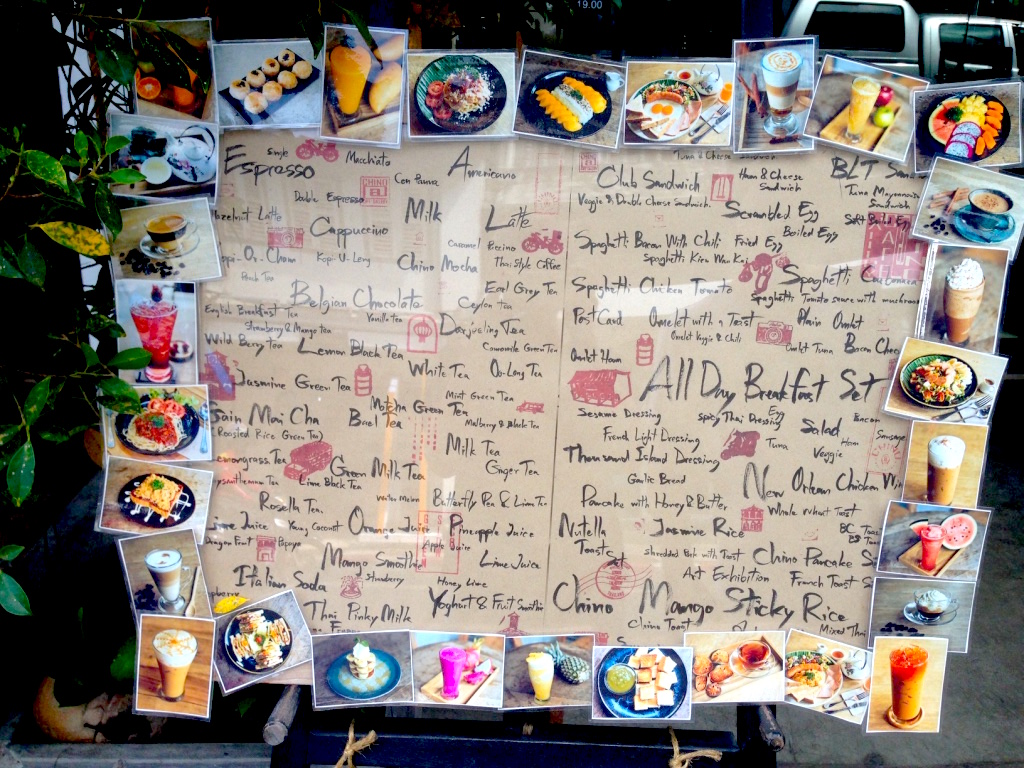 19.00
Single
Macchiato
Espresso
Americano
Double Espresso
Con Panna
Hazelnut Latte
Milk
Latte
Cappuccino
Caramel
Piccino
Kopi-U-Leng
Chino Mocha
Thai Style Coffee
Peach Tea
Earl Grey Tea
Belgian Chocolate
Ceylon tea
English Breakfast Tea
Vanilla tea
Strawberry & Mango tea
Darjeeling Tea
Wild Berry tea
Lemon Black Tea
Camomile Green Tea
White Tea
Oo-Long Tea
Jasmine Green Tea
Mint Green Tea
Matcha Green Tea
Gain Mai Cha
Bael Tea
Mulberry & Black Tea
(Roasted Rice Green Tea)
Milk Tea
Lemongrass Tea
Green Milk Tea
Ginger Tea
Lime Black Tea
Water Melon
Butterfly Pea & Lime Tea
Rosella Tea
Young Coconut
Orange Juice
Pineapple Juice
Dragon Fruit
Papaya
Apple Juice
Mango Smoothie
Lime Juice
Italian Soda
Strawberry
Honey Lime
Yoghurt & Fruit Smoothie
Thai Pinky Milk
Tuna & Cheese Sandwich
Club Sandwich
Ham & Cheese
Sandwich
BLT
Veggie & Double Cheese Sandwich
Tuna Mayonnaise
Sandwich
Scrambled Egg
Soft Boiled Egg
Boiled Egg
Spaghetti Bacon With Chili
Fried Egg
Spaghetti Kiew Wan Kai
Spaghetti Carbonara
Spaghetti Chicken Tomato
Spaghetti Tomato sauce with mushroom
PostCard
Omelet with a Toast
Plain Omlet
Omelet Veggie & Chili
Omlet Ham
Omlet Tuna
Bacon
All Day Breakfast Set
Sesame Dressing
Spicy Thai Dressing
Egg
Bacon
French Light Dressing
Salad
Tuna
Ham
Sausage
Thousand Island Dressing
Veggie
Garlic Bread
New Orlean Chicken
Pancake with Honey & Butter
Whole Wheat Toast
Nutella
Toast Set
Jasmine Rice
Shredded Pork with Toast
Chino Pancake
Art Exhibition
French Toast
Chino Mango Sticky Rice
Chino Toast
Mixed Thai